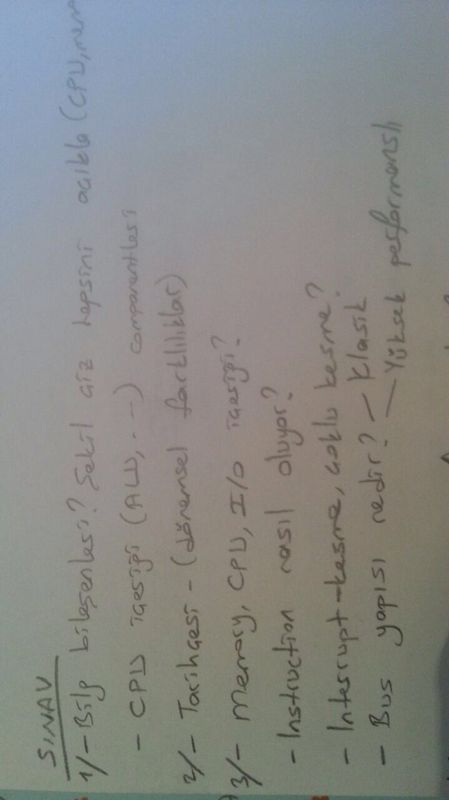 SINAV
1/- Bilg bileşenleri? Şekil çiz hepsini açıkla (CPU, mem
- CPU içeriği (ALU, ...) componentleri
2/- Tarihçesi - (dönemsel farklılıklar)
3/- Memory, CPU, I/O içeriği?
- Instruction nasıl oluyor?
- Interrupt-kesme, çoklu kesme?
- Bus yapısı nedir? - Klasik
- Yüksek performanslı